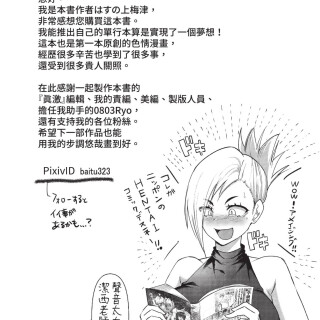 我是本書作者はすの上梅津，
非常感想您購買這本書。
我能推出自己的單行本算是實現了一個夢想！
這本也是第一本原創的色情漫畫，
經歷很多辛苦也學到了很多事，
還受到很多貴人關照。
在此感謝一起製作本書的
『眞激』編輯、我的責編、美編、製版人員、
擔任我助手的0803Ryo，
還有支持我的各位粉絲。
希望下一部作品也能
用我的步調悠哉畫到好。
PixivID baitu323
フォローすると
イイ事が
あるかも…?
WOW! アメイジング!!
コレが
ニッポンの
HENTAI
コミックデスネ!
ドキ
ドキ
聲音太大
潔西老師